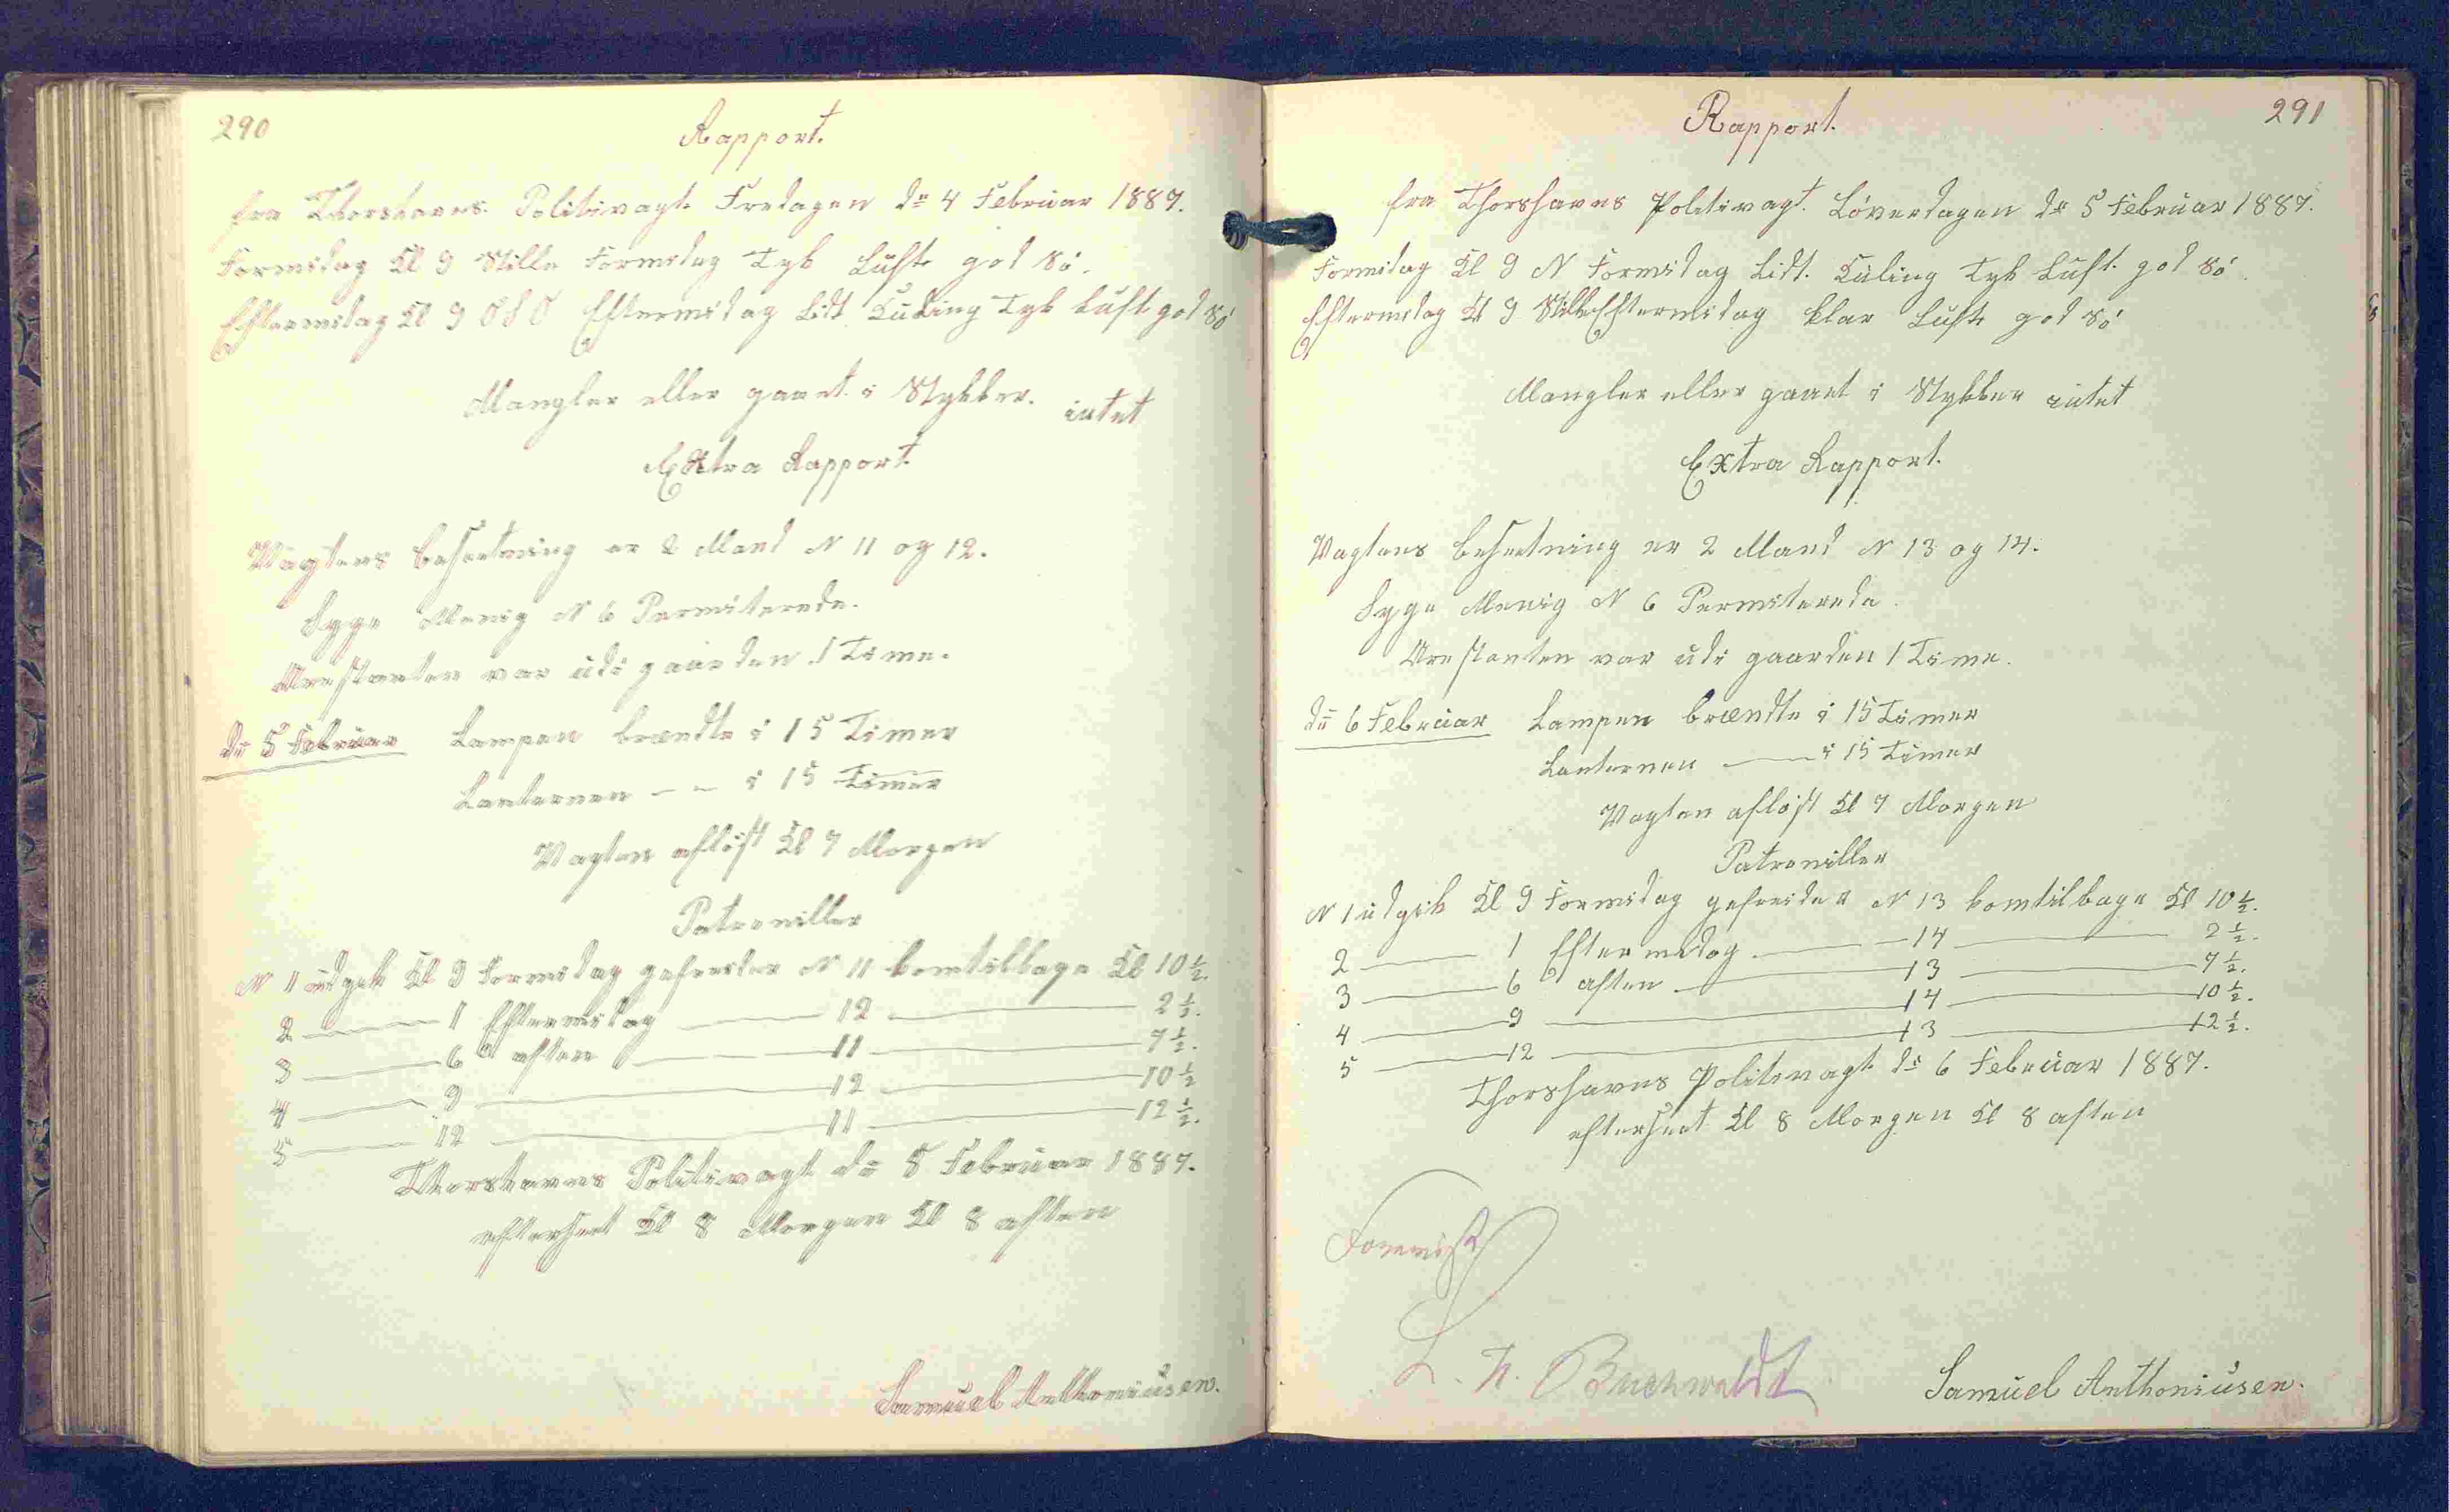 290
Rapport.
fra Thorshavns Politivagt Fredagen dn 4 Februar 1887.
Formidag Kl 9 Stille Formidag Tyk Luft god Sö.
Eftermidag Kl 9 OSO Eftermidag Lidt Kuling Tyk Luft god Sö
Mangler eller gaaet i Stykker. intet
Extra Rapport.
Vagtens besætning er 2 Mand N 11 og 12.
Syge Menig N 6 Permiterede.
Arestanten var udi gaarden 1 Time.
dn 5 Februar Lampen brændte i 15 Timer
Lanternen — — i 15 Timer
Vagten aflöst Kl 7 Morgen
Patroniller
N 1 udgik Kl 9 Formidag gefreider N 11 komtilbage Kl 10 ½.
2 — 1 Eftermidag — 12 — 2 ½.
3 — 6 aften — 11 — 7 ½.
4 — 9 — 12 — 10 ½
5 — 12 — 11 — 12 ½.
Thorshavns Politivagt dn 5 Februar 1887.
efterseet Kl 8 Morgen Kl 8 aften
Samuel Anthoniusen.
291
Rapport.
fra Thorshavns Politivagt. Löverdagen dn 5 Februar 1887.
Formidag Kl 9 N Formidag Lidt. Kuling Tyk Luft. god Sö.
Eftermidag Kl 9 Stille Eftermidag klar Luft god Sö
Mangler eller gaaet i Stykker intet
Extra Rapport.
Vagtens besætning er 2 Mand N 13 og 14.
Syge Menig N 6 Permiterede.
Arestanten var udi gaarden 1 Time.
dn 6 Februar Lampen brændte i 15 Timer
Lanternen — i 15 Timer
Vagten aflöst Kl 7 Morgen
Patroniller
N 1 udgik Kl 9 Formidag gefreider N 13 komtilbage Kl 10 ½.
2 — 1 Eftermidag — 14 — 2 ½.
3 — 6 aften — 13 — 7 ½.
4 — 9 — 14 — 10 ½.
5 — 12 — 13 — 12 ½.
Thorshavns Politivagt dn 6 Februar 1887.
efterseet Kl 8 Morgen Kl 8 aften
Forevist
L. N. Buchwaldt
Samuel Anthoniusen.